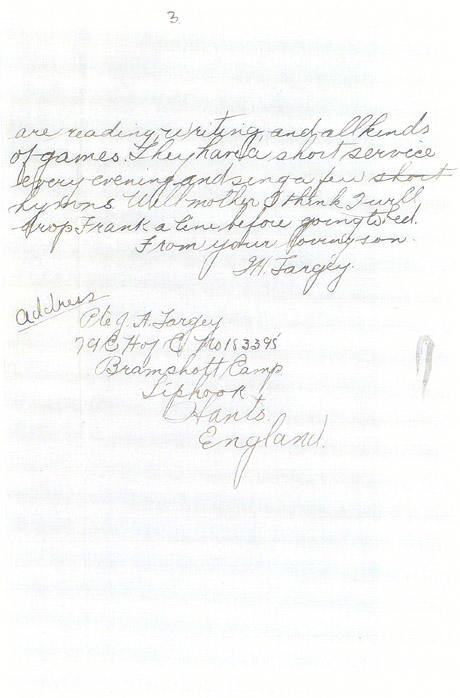 3.
are reading, writing, and all kinds
of games. They have a short service
every evening and sing a few short
hymns. Well mother I think I will
drop Frank a line before going to bed.
From your loving son.
J.A. Fargey.
Address
Pte J. A. Fargey
79 C. No 153395
Bramshott Camp
Liphook
Hants.
England.